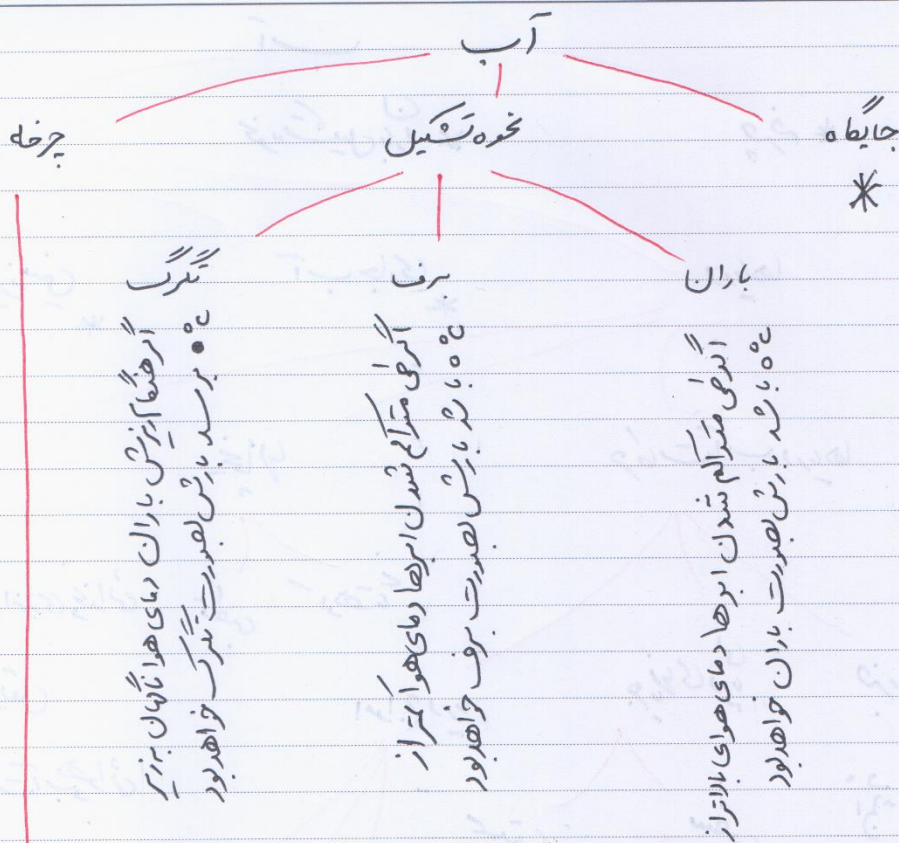 آب
جایگاه
نحوه تشکیل
چرخه
*
باران
برف
تگرگ
اگر طی متراکم شدن ابرها دمای هوای بالاتر از
0°c باشد بارش بصورت باران خواهد بود
اگر طی متراکم شدن ابرها دمای هوا کمتر از
0°c باشد بارش بصورت برف خواهد بود
اگر هنگام ریزش باران دمای هوا ناگهان به زیر
0°c برسد بارش بصورت تگرگ خواهد بود